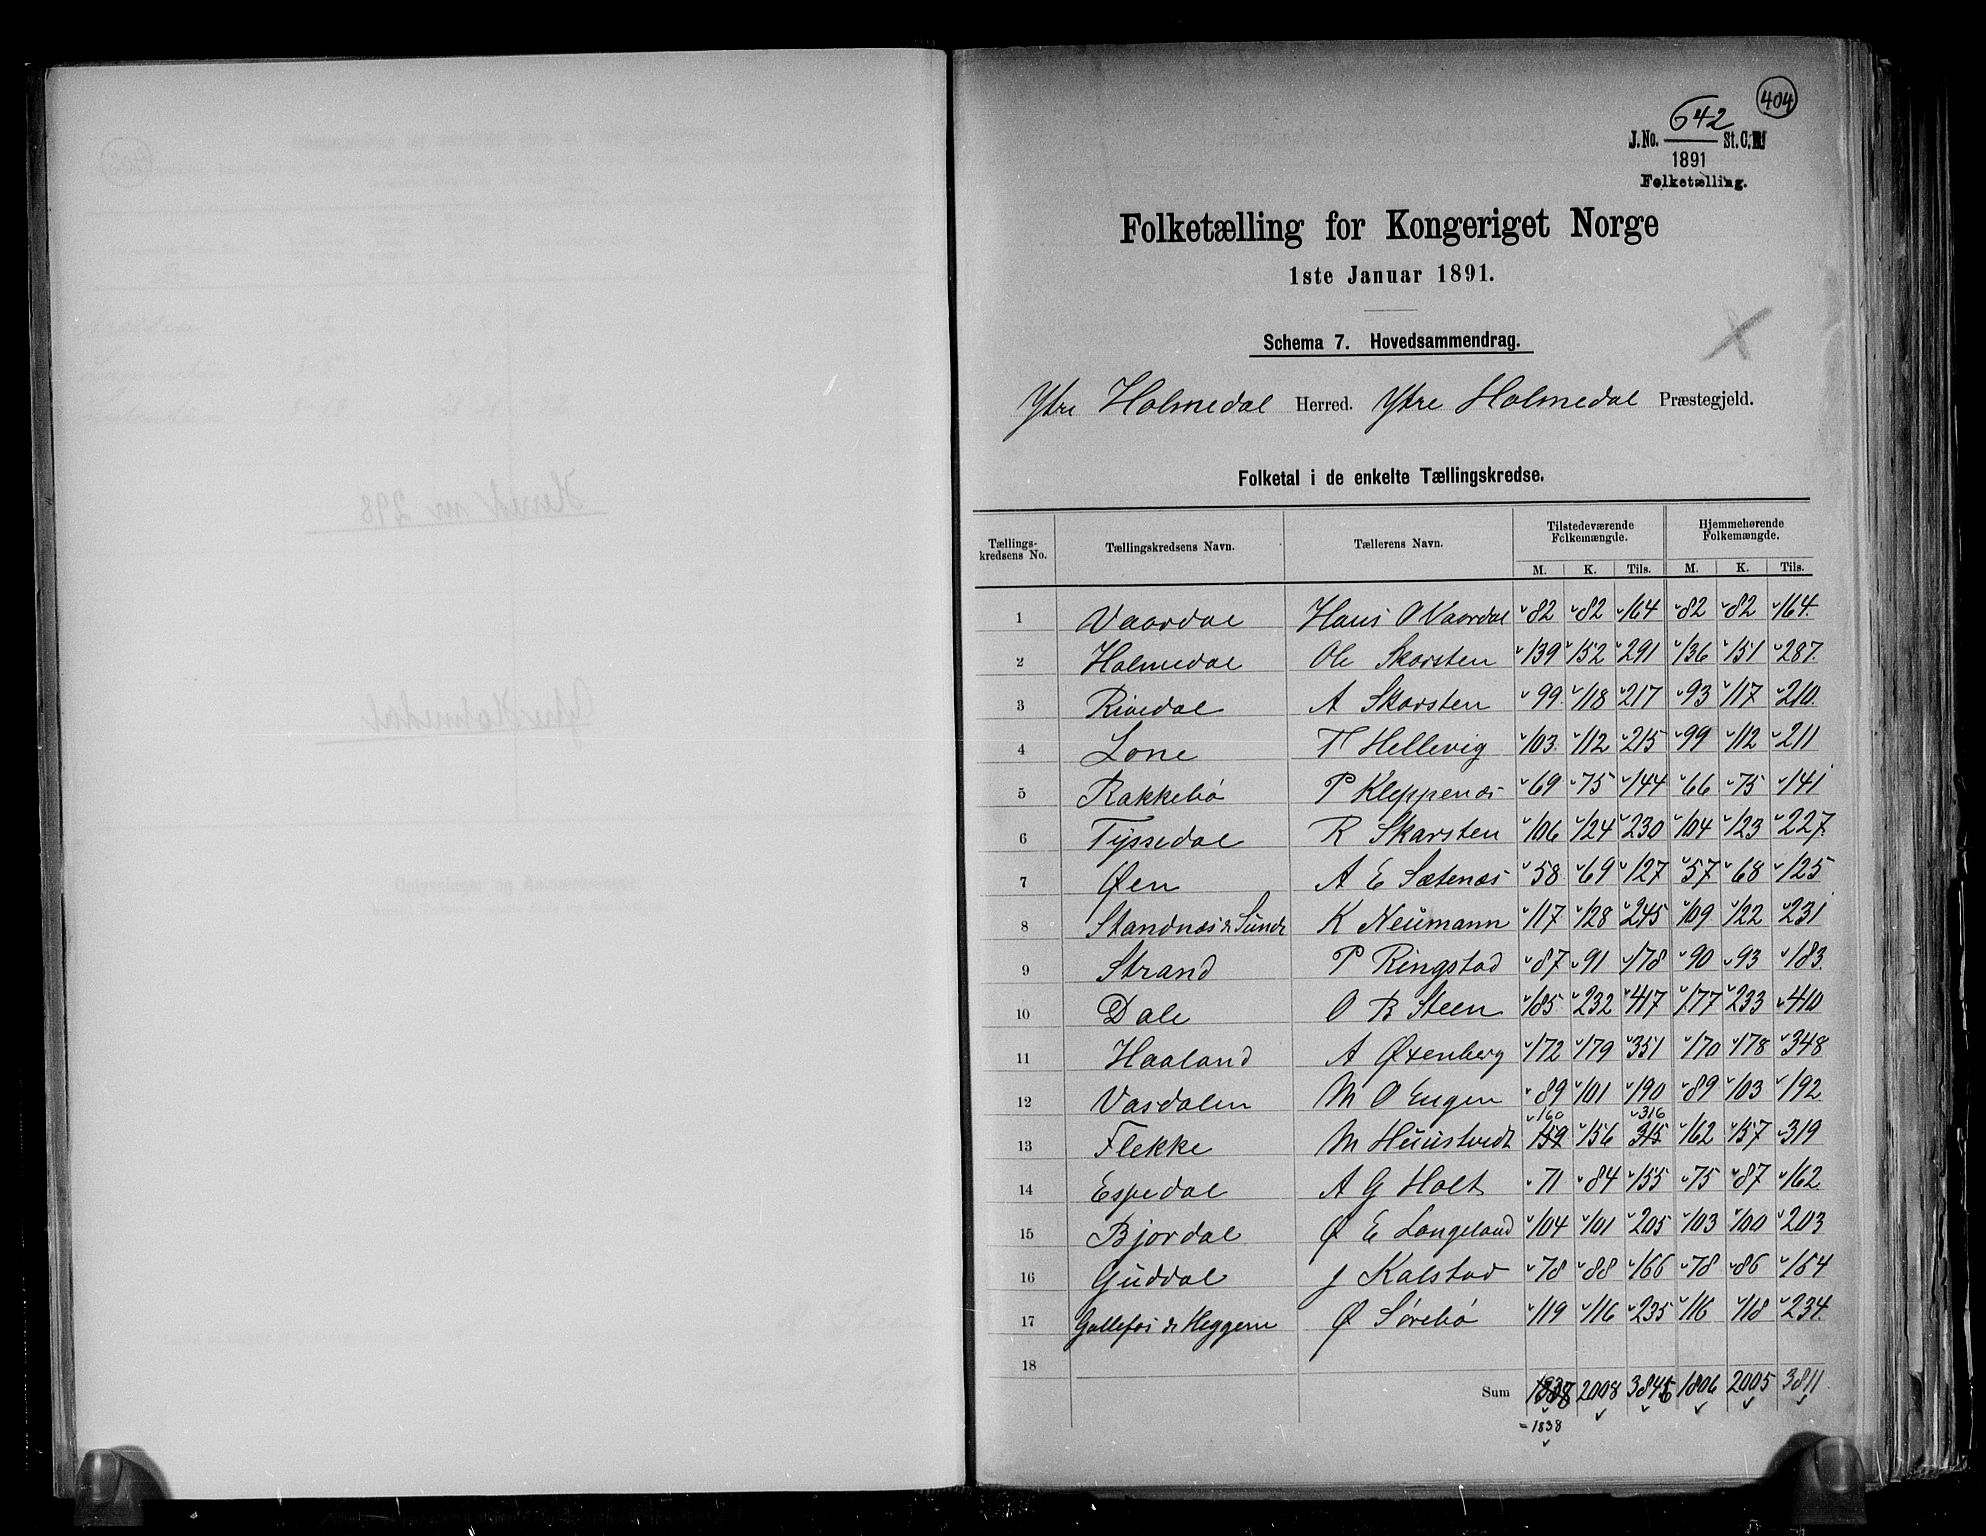 404
J.No. 642 St. C.
1891
Folketælling.
Folketælling for Kongeriget Norge
1ste Januar 1891.
Schema 7. Hovedsammendrag.
Ytre Holmedal Herred. Ytre Holmedal Præstegjeld.
Folketal i de enkelte Tællingskredse.
Tællingskredsens No. Tællingskredsens Navn. Tællerens Navn. Tilstedeværende Folkemængde. Hjemmehørende Folkemængde.
M. K. Tils. M. K. Tils.
1 Vaardal Hans O Vaardal 82 82 164 82 82 164.
2 Holmedal Ole Skarsten 139 152 291 136 151 287.
3 Rivedal A Skarsten 99 118 217 93 117 210.
4 Lone Hellevig 103 112 215 99 112 211
5 Rakkebø P Kleppenæs 69 75 144 66 75 141
6 Tyssedal R Skarsten 106 124 230 104 123 227
7 Øen A E Sætenæs 58 69 127 57 68 125
8 Standnæs & Sunde K Neumann 117 128 245 109 122 231
9 Strand P Ringstad 87 91 178 90 93 183
10 Dale O B Steen 185 232 417 177 233 410
11 Haaland A Øxenberg 172 179 351 170 178 348
12 Vasdalen M O Engen 89 101 190 89 103 192
160 316
13 Flekke M Huustvedt 159 156 315 162 157 319
14 Espedal A G Holt 71 84 155 75 87 162
15 Bjordal Ø E Langeland 104 101 205 103 100 203
16 Guddal J Kalstad 78 88 166 78 86 164
17 Gallefos & Heggem Ø Sørebø 119 116 235 116 118 234.
18
Sum 2008 3846 1806 2005 3811
= 1838
Herred nr 298
Ytre Holmedal